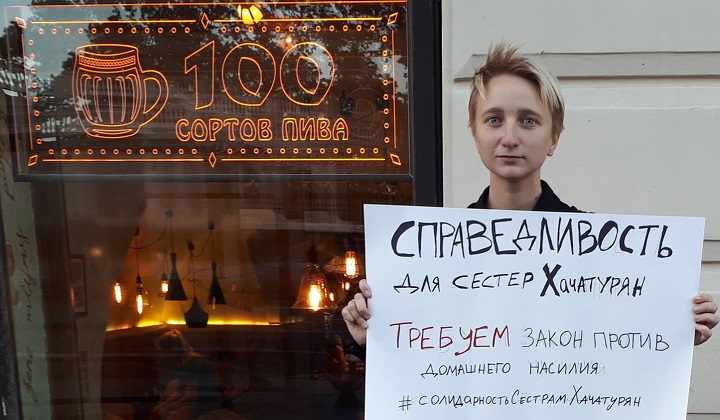 100
СОРТОВ ПИВА
СПРАВЕДЛИВОСТЬ
ДЛЯ СЕСТЕР ХАЧАТУРЯН
ТРЕБУЕМ ЗАКОН ПРОТИВ
ДОМАШНЕГО НАСИЛИЯ
#СОЛИДАРНОСТЬСЕСТРАМХАЧАТУРЯН